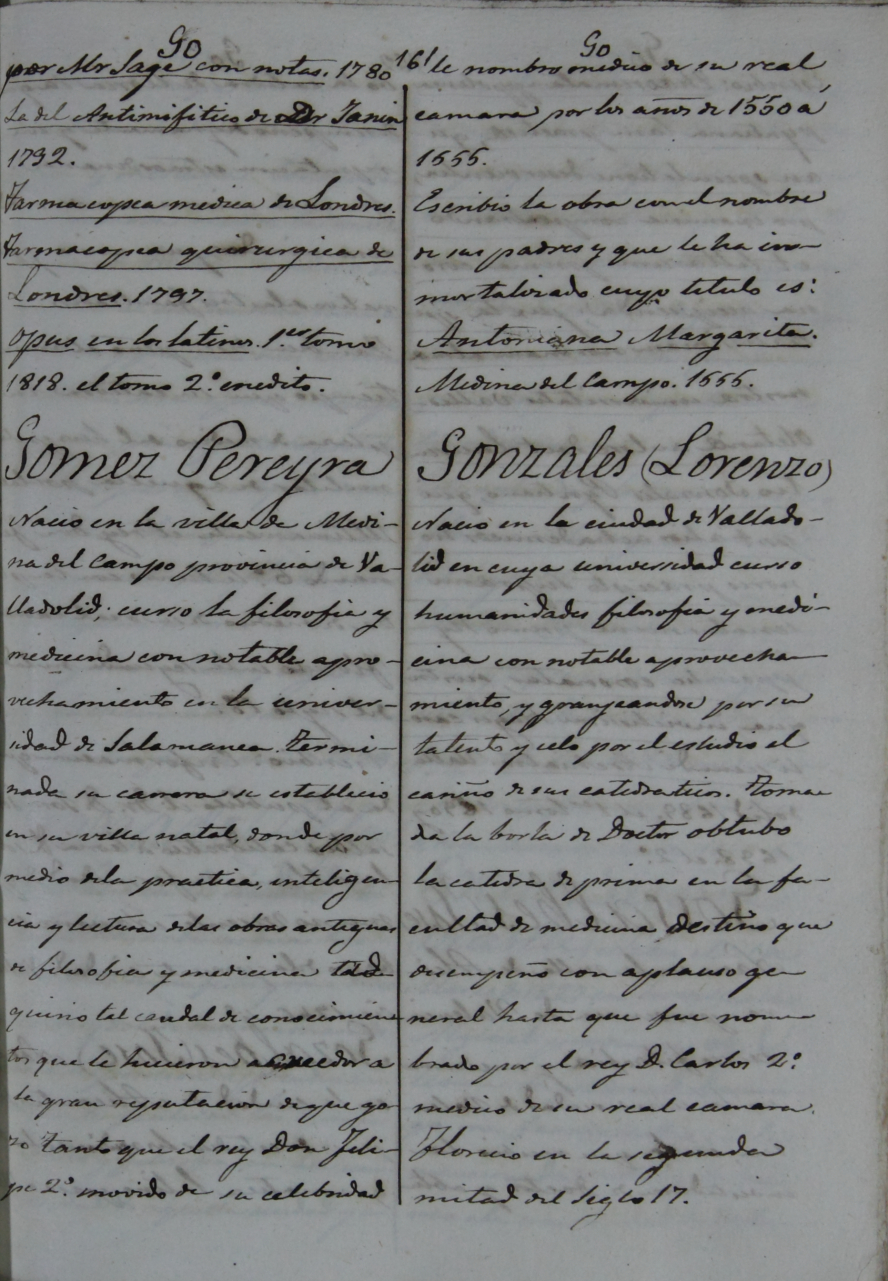 Go
por Mr Sage con notas. 1780
La del Antimifitico de Dr Janin
1792.
Farmacopea medica de Londres.
Farmacopea quirurgica de
Londres. 1797.
Opus en los latinos. 1.er tomo
1818. el tomo 2.º inedito.
Gomez Pereyra
Nacio en la villa de Medi-
na del Campo provincia de Va-
lladolid; curso la filosofia y
medicina con notable apro-
vechamiento en la univer-
sidad de Salamanca. Termi-
nada su carrera se establecio
en su villa natal, donde por
medio dela practica, inteligen-
cia y lectura delas obras antiguas
de filosofia y medicina
quirio tal caudal de conocimien-
tos que le hicieron acreedor a
la gran reputacion de que go-
zo tanto que el rey Don Feli-
pe 2.º movido de su celebridad
161
Go
le nombro medico de su real
camara por los años de 1550 á
1555.
Escribio la obra con el nombre
de sus padres y que le ha in-
mortalizado cuyo titulo es:
Antoniana Margarita.
Medina del Campo. 1555.
Gonzales (Lorenzo)
Nacio en la ciudad de Vallado-
lid en cuya universidad curso
humanidades filosofia y medi-
cina con notable aprovecha-
miento, y granjeandose por su
talento y celo por el estudio el
cariño de sus catedraticos. Toma-
da la borla de Doctor obtubo
la catedra de prima en la fa-
cultad de medicina destino que
desempeño con aplauso ge-
neral hasta que fue nom-
brado por el rey D. Carlos 2.º
medico de su real camara.
Florecio en la segunda
mitad del siglo 17.